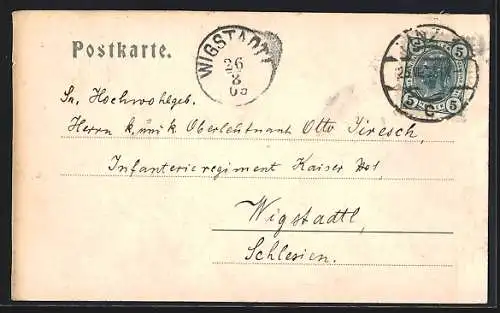 Postkarte.
WIGSTADTL
26
8
5
5 5
Sr. Hochwohlgeb.
Herrn k. und k. Oberleutnant Otto Jiresch,
Infanterieregiment Kaiser No 1
Wigstadtl,
Schlesien.